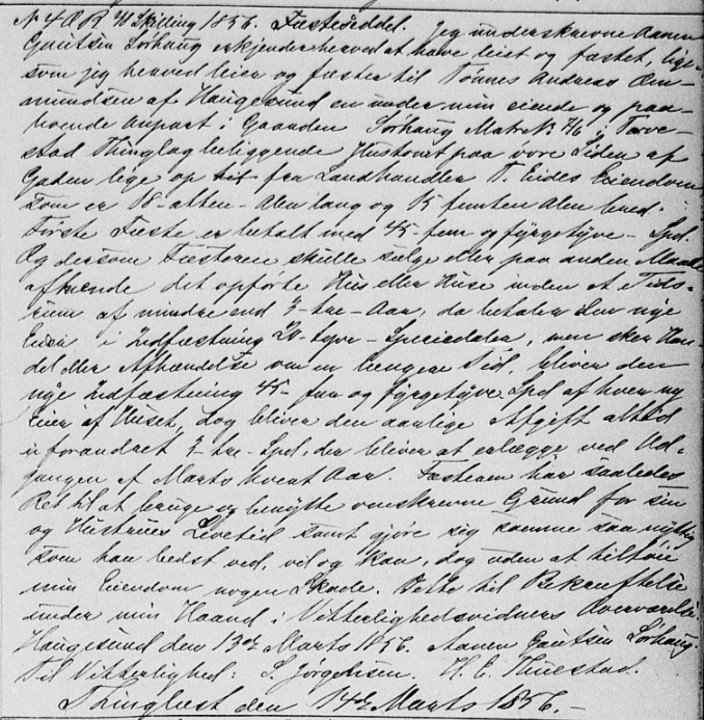 N. 4 O R 24 Skilling 1856. Fæsteseddel. Jeg underskrevne Aanen
Gautsen Sørhaug erkjender herved at have leiet og fæstet, lige-
som jeg herved leier og fæster til Tønnes Andreas Om-
mundsen af Haugesund en under min eiende og paa-
boende Anpart i Gaarden Sørhaug Matr N. 46 i Torve-
stad Thinglag beliggende Hustomt paa øvre Siden af
Gaden lige op til fra Landhandler T. Eides Eiendom
som er 18-atten-Alen lang og 15 femten Alen bred.
Første Fæste er betalt med 45-fem og fyrgetyve-Spd.
Og dersom Fæsteren skulle sælge eller paa anden Maade
afhænde det opførte Hus eller Huse inden et Tids-
rum af mindre end 3-tre-Aar, da betaler den nye
Eier i Indfæstning 20-tyve-Speciedaler, men sker Han-
del eller Afhændelse om en længere Tid, bliver den
nye Indfæstning 45-fem og fyrgetyve Spd af hver ny
Eier af Huset, dog bliver den aarlige Afgift altid
uforandret 3-tre-Spd, der bliver at erlægge ved Ud-
gangen af Marts hvert Aar. Fæsteren har saaledes
Ret til at bruge og benytte omskrevne Grund for sin
og Hustrues Levetid samt gjøre sig samme saa nyttig
som han bedst ved, vil og kan, dog uden at tilføie
min Eiendom nogen Skade. Dette til Bekræftelse
under min Haand i Vitterlighedsvidners Overværelse.
Haugesund den 13de Marts 1856. Aanen Gautsen Sørhaug.
Til Vitterlighed: S. Jørgensen. H. E. Thuestad.
Thinglæst den 14de Marts 1856.-